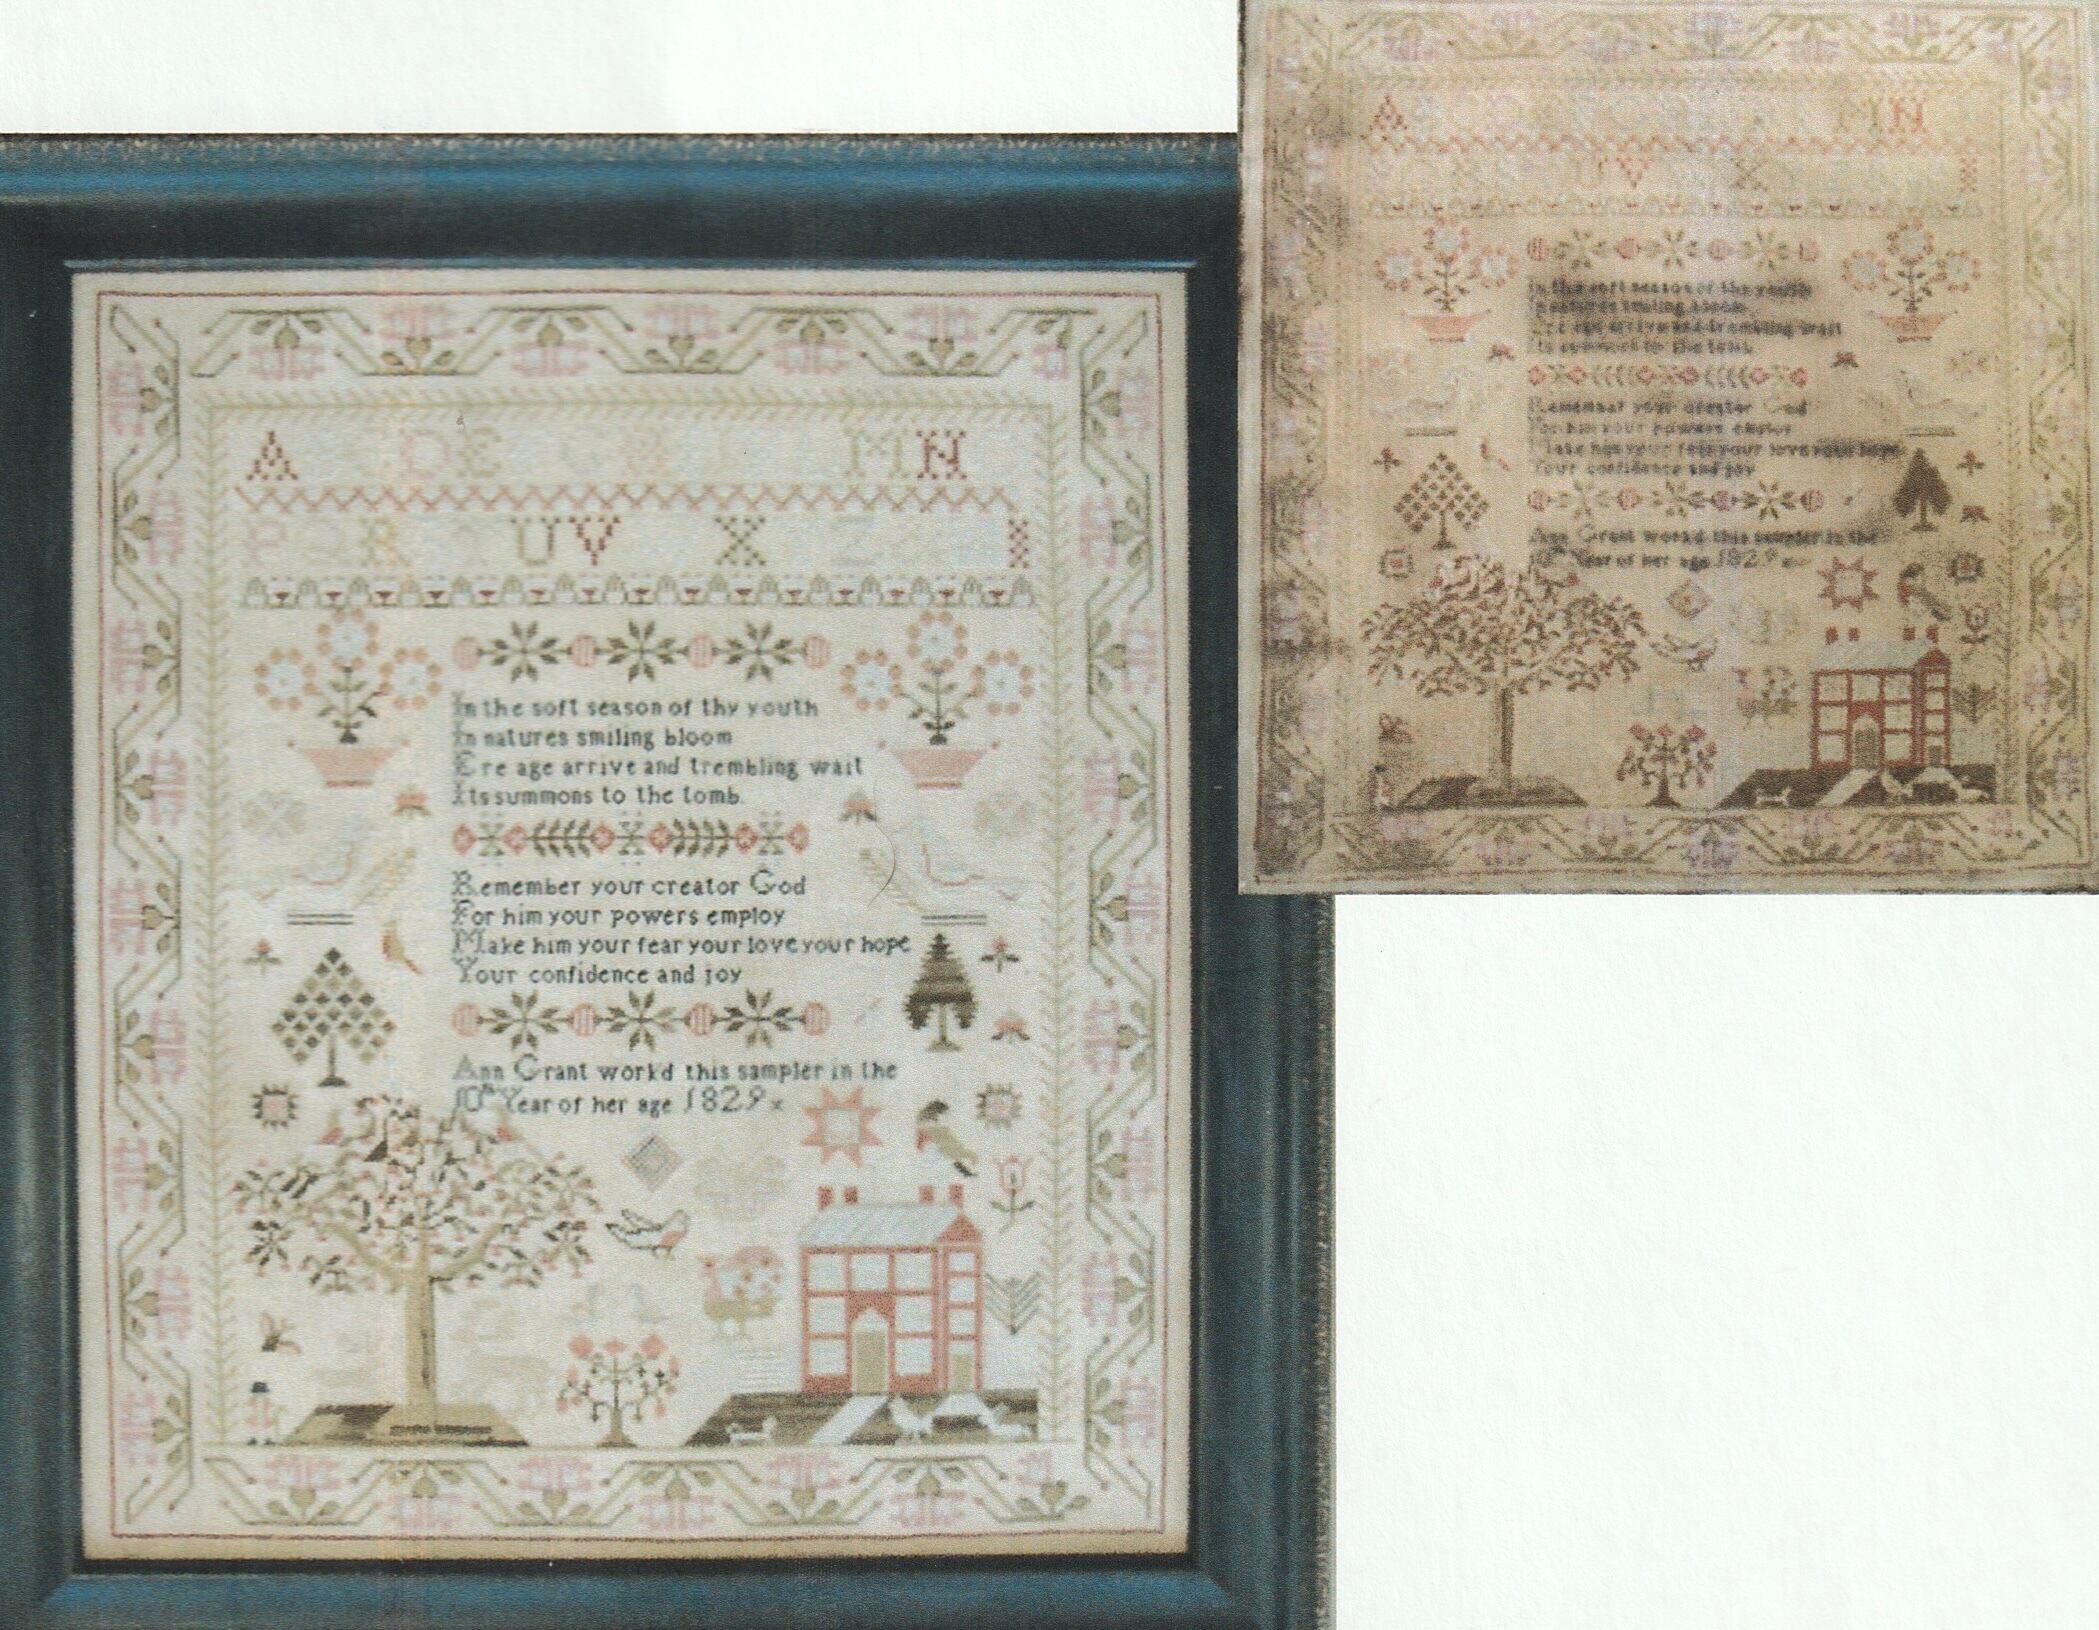 A D E M N
P R U V X Z I
In the soft season of thy youth
In natures smiling bloom
Ere age arrive and trembling wait
Its summons to the tomb.
Remember your creator God
For him your powers employ
Make him your fear your love your hope
Your confidence and joy
Ann Grant workd this sampler in the
10th Year of her age 1829 x
A M N
U V X I
In the soft season of thy youth
In natures smiling bloom
Ere age arrive and trembling wait
Its summons to the tomb
Remember your creator God
For him your powers employ
Make him your fear your love your hope
Your confidence and joy
Ann Grant workd this sampler in the
10th Year of her age 1829 x